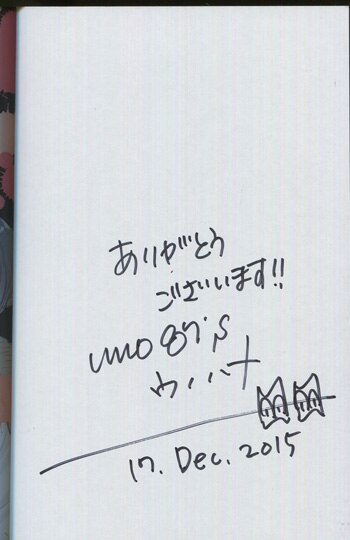 ありがとう
ございます!!
uno 87's
ウノハナ
17. Dec. 2015